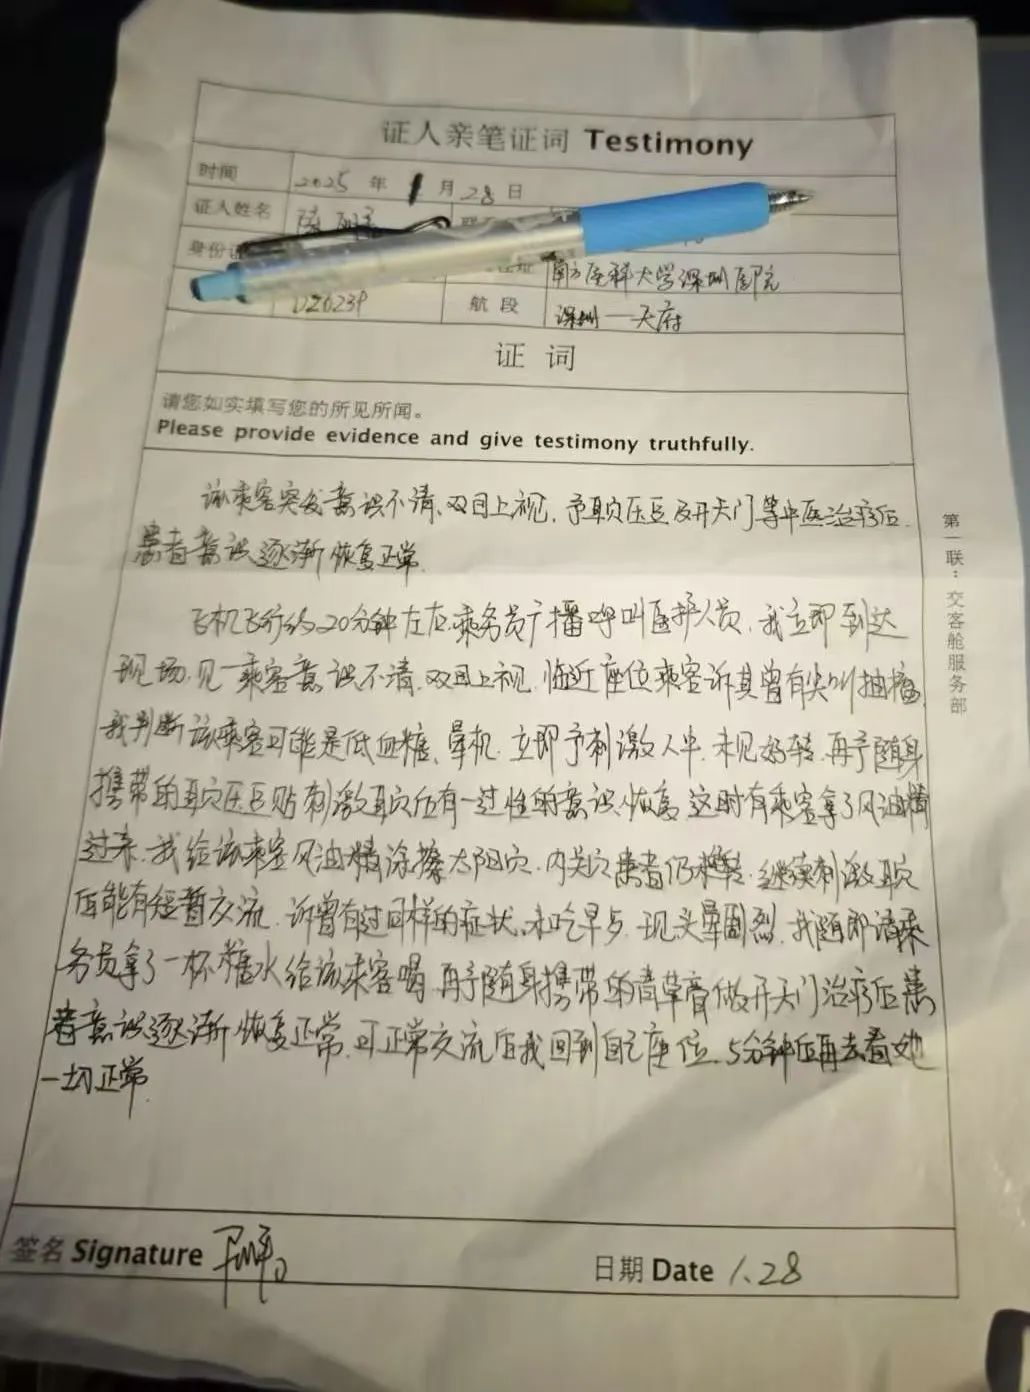 证人亲笔证词 Testimony
时间 2025 年 1 月 28 日
证人姓名
身份证
南方医科大学深圳医院
DZ6239 航段 深圳—天府
证词
请您如实填写您的所见所闻。
Please provide evidence and give testimony truthfully.
该乘客突发意识不清,双目上视,予耳穴压豆及开天门等中医治疗后,
患者意识逐渐恢复正常.
飞机飞行约20分钟左右,乘务员广播呼叫医护人员,我立即到达
现场,见一乘客意识不清,双目上视,临近座位乘客诉其曾有尖叫抽搐,
我判断该乘客可能是低血糖、晕机,立即予刺激人中,未见好转,再予随身
携带的耳穴压豆贴刺激耳穴后有一过性的意识恢复,这时有乘客拿了风油精
过来,我给该乘客风油精涂擦太阳穴、内关穴,患者仍未好转,继续刺激耳穴
后能有短暂交流,诉曾有过同样的症状,未吃早歺,现头晕剧烈,我随即请乘
务员拿了一杯糖水给该乘客喝,再予随身携带的青草膏做开天门治疗后患
者意识逐渐恢复正常,可正常交流后我回到自己座位,5分钟后再去看她
一切正常.
第一联：交客舱服务部
签名 Signature
日期 Date 1.28